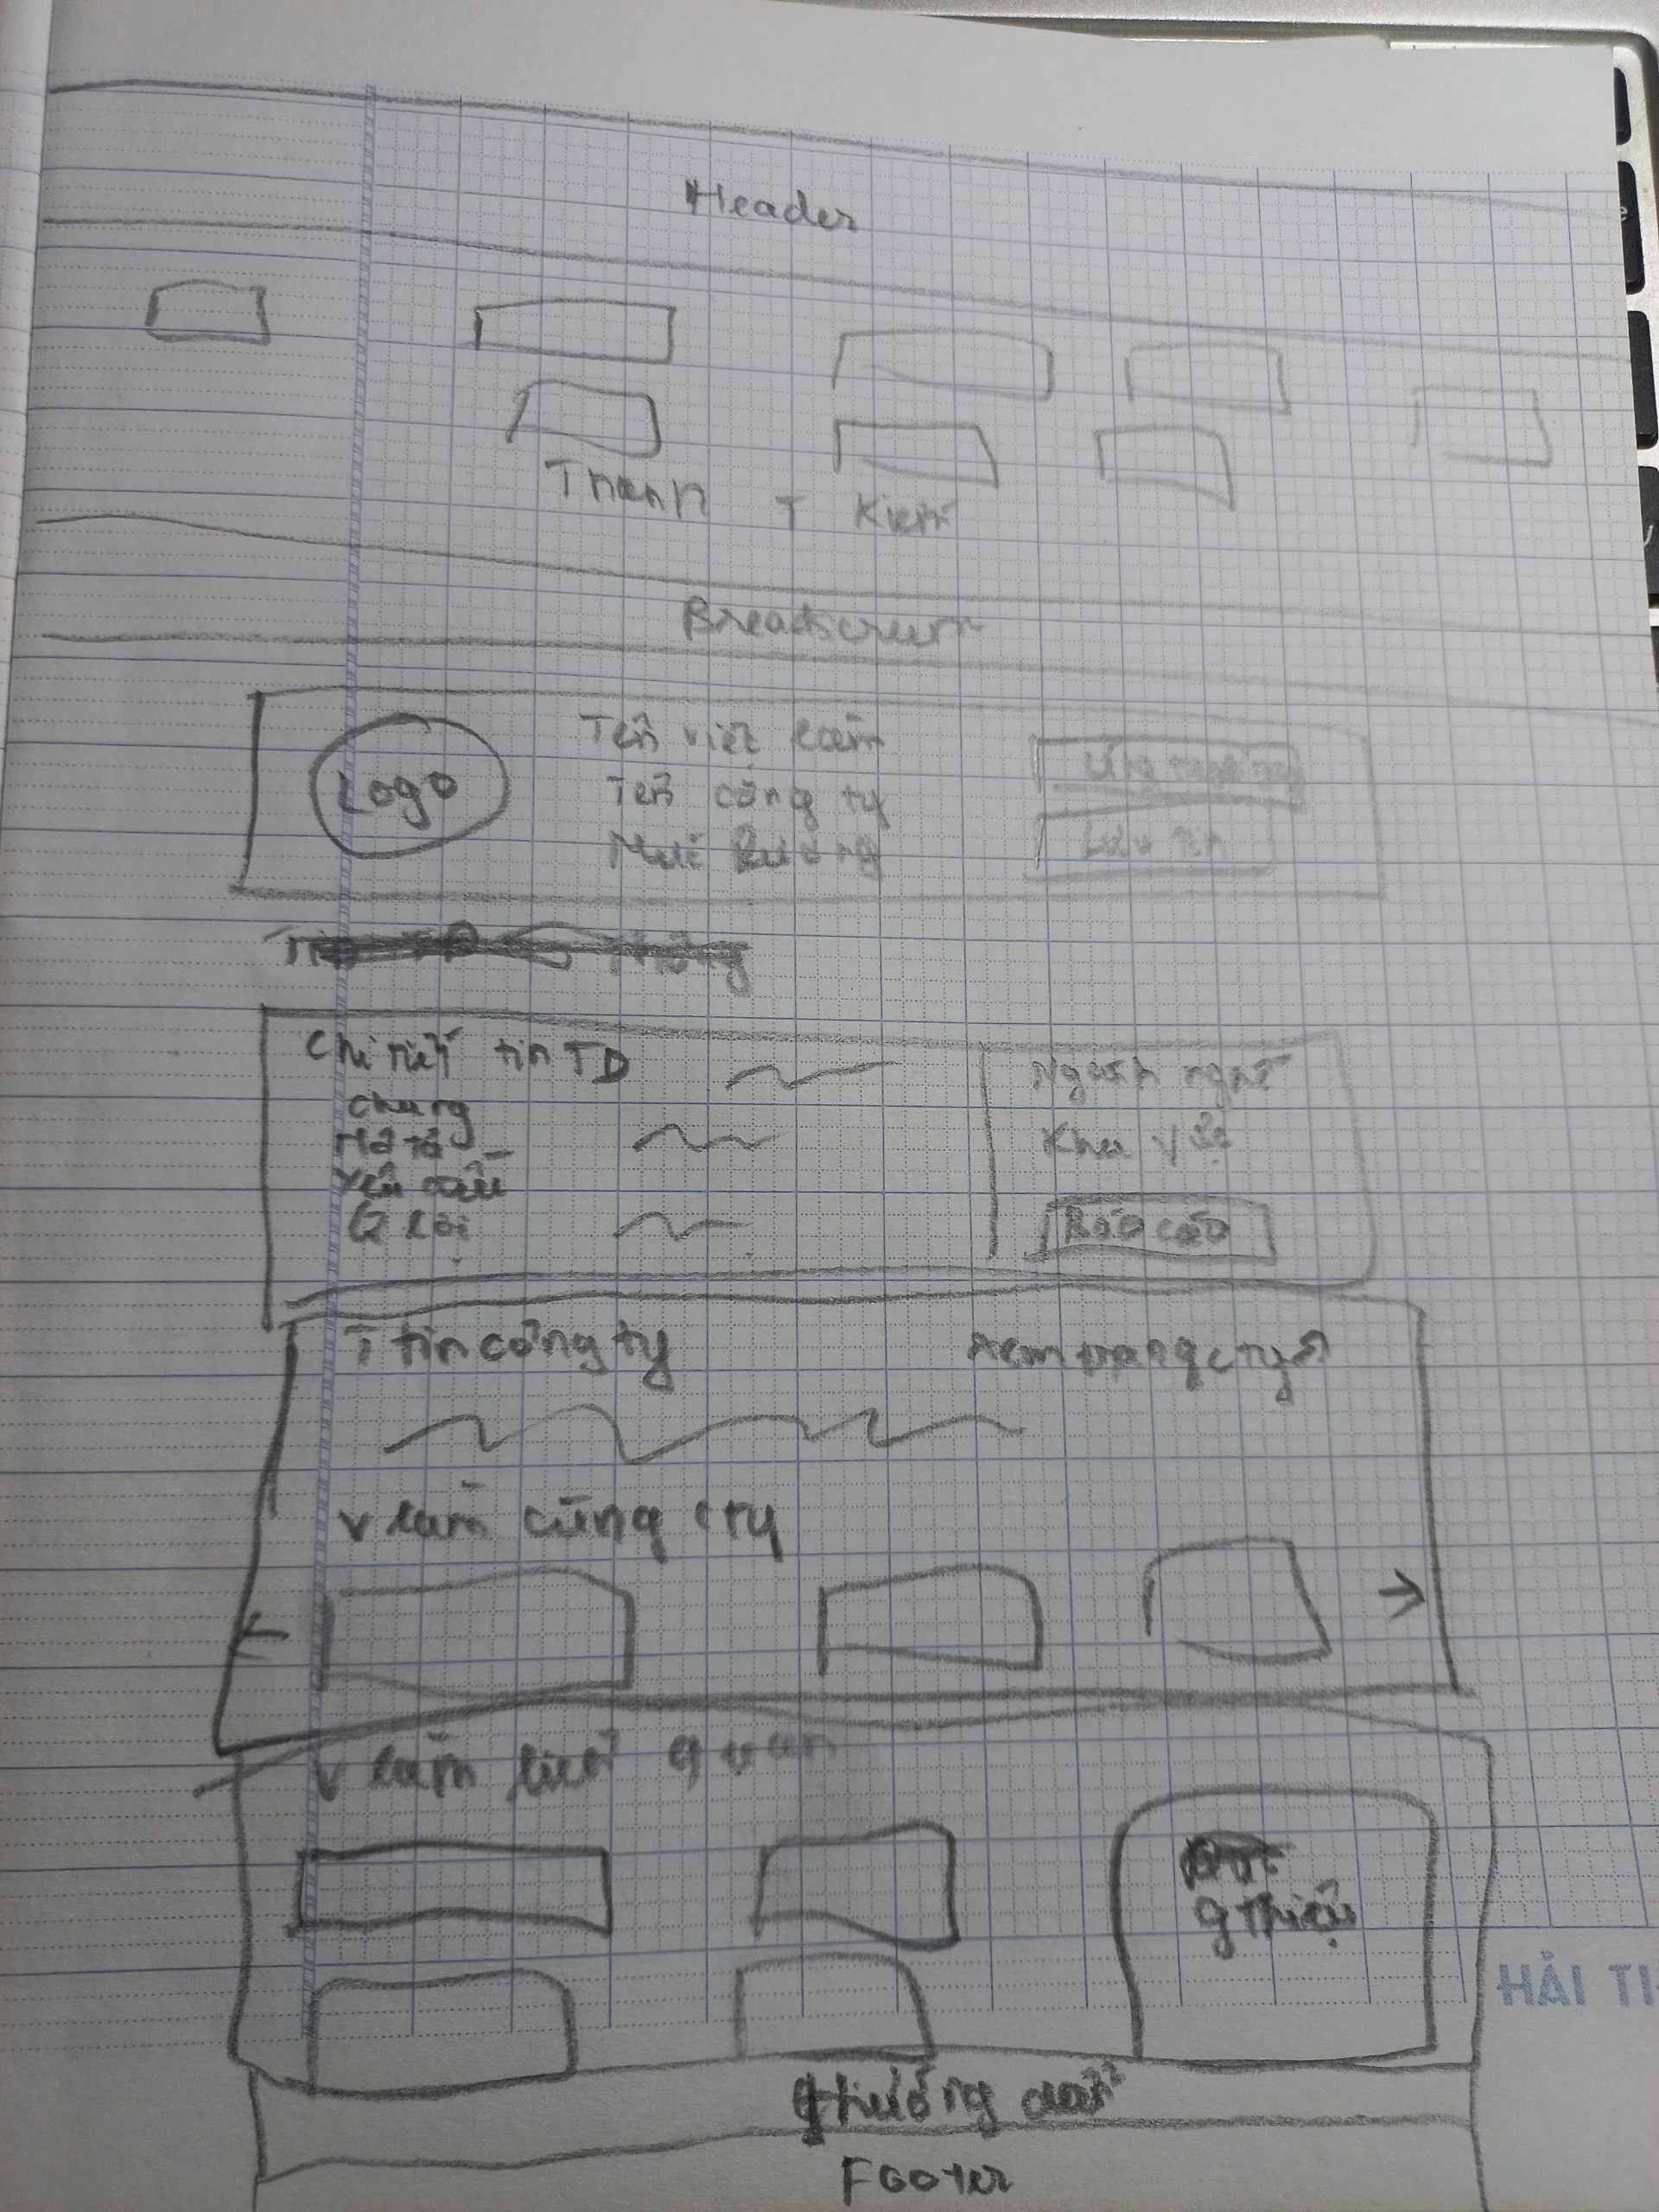 Header
Thanh T Kiếm
Breadscrum
Logo
Tên việc làm
Tên công ty
Mức lương
Ứng tuyển ngay
Lưu tin
Chi tiết tin TD
chung
Mô tả
Yêu cầu
Q lợi
Ngành nghề
Khu vực
Báo cáo
T tin công ty
xem trang cty
v làm cùng cty
v làm liên quan
g thiệu
hướng dẫn
Footer
HẢI TI